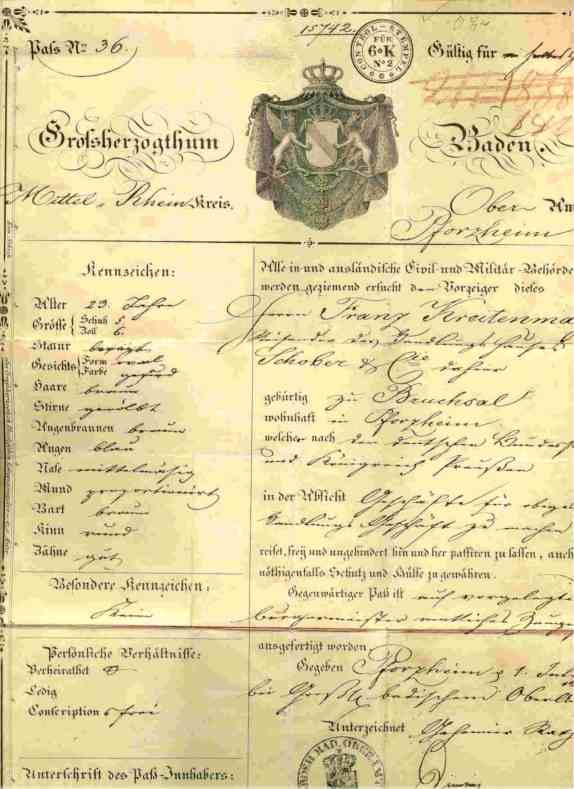 15742.
Paß No 36.
CONTROL-STEMPEL
FÜR
6·K
No 2
Gültig für
Großherzogthum Baden.
Mittel-Rhein Kreis.
Ober Am
Pforzheim
Kennzeichen:
Alter 23 Jahre
Größe Schuh 5
Zoll 6
Statur besetzt
Gesichts Form oval
Farbe gesund
Haare braun
Stirne gewölbt
Augenbraunen braun
Augen blau
Nase mittelmäßig
Mund proportionirt
Bart braun
Kinn rund
Zähne gut
Besondere Kennzeichen:
Keine
Persönliche Verhältnisse:
Verheirathet
Ledig
Conscriptions frei
Unterschrift des Paß-Innhabers:
Alle in- und ausländische Civil- und Militär-Behörde
werden geziemend ersucht den Vorzeiger dieses
Herrn Franz Kreitenma
Reisender des Handlungshauses
Schober & Cie dahier
gebürtig zu Bruchsal
wohnhaft in Pforzheim
welcher nach den deutschen Bundes
und Königreich Preußen
in der Absicht Geschäfte für obige
Handlungs Geschäft zu machen
reiset, frey und ungehindert hin und her passiren zu lassen, auch
nöthigenfalls Schutz und Hülfe zu gewähren.
Gegenwärtiger Paß ist auf vorgelegte
bürgermeister amtliches Zeug
ausgefertigt worden
Gegeben Pforzheim
bei Großh badischem Obera
Unterzeichnet
GROSH. BAD. OBERAMT